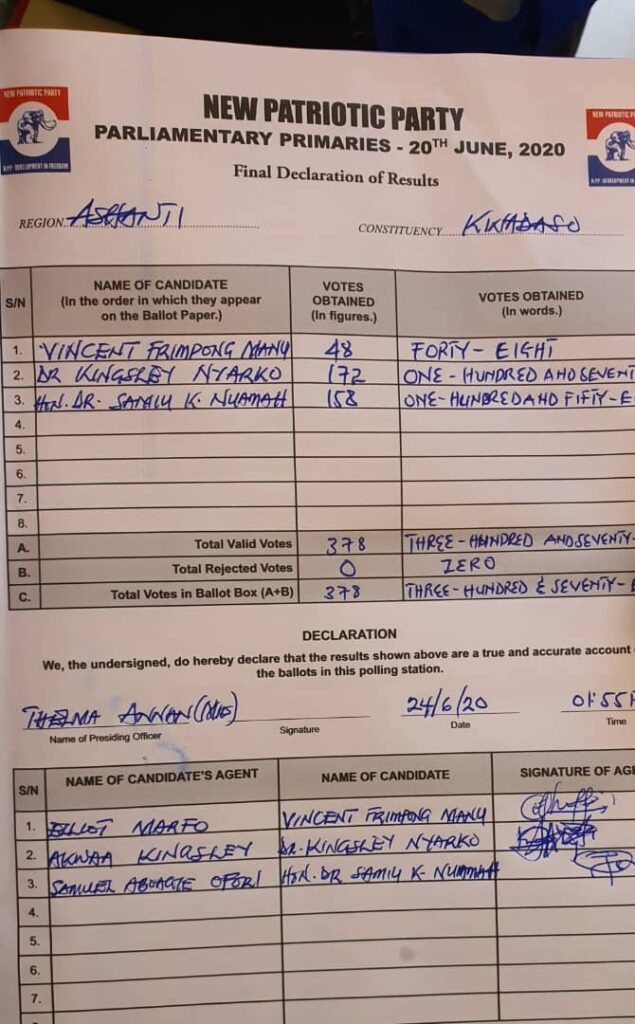 NEW PATRIOTIC PARTY
NEW PATRIOTIC PARTY
PARLIAMENTARY PRIMARIES - 20TH JUNE, 2020
Final Declaration of Results
NPP - DEVELOPMENT IN FREEDOM
REGION ASHANTI CONSTITUENCY KWADASO
S/N NAME OF CANDIDATE (In the order in which they appear on the Ballot Paper.) VOTES OBTAINED (In figures.) VOTES OBTAINED (In words.)
1. VINCENT FRIMPONG MANU 48 FORTY-EIGHT
2. DR KINGSLEY NYARKO 172 ONE-HUNDRED AND SEVENT
3. HON. DR. SAMIU K. NUAMAH 158 ONE-HUNDRED AND FIFTY-E
4.
5.
6.
7.
8.
A. Total Valid Votes 378 THREE-HUNDRED AND SEVENTY-
B. Total Rejected Votes 0 ZERO
C. Total Votes in Ballot Box (A+B) 378 THREE-HUNDRED & SEVENTY-E
DECLARATION
We, the undersigned, do hereby declare that the results shown above are a true and accurate account
the ballots in this polling station.
THELMA 24/6/20 01:55
Name of Presiding Officer Signature Date Time
S/N NAME OF CANDIDATE'S AGENT NAME OF CANDIDATE SIGNATURE OF AGE
1. ELLIOT MARFO VINCENT FRIMPONG MANU
2. AKWAA KINGSLEY DR. KINGSLEY NYARKO
3. SAMUEL OFORI HON. DR SAMIU K.
4.
5.
6.
7.